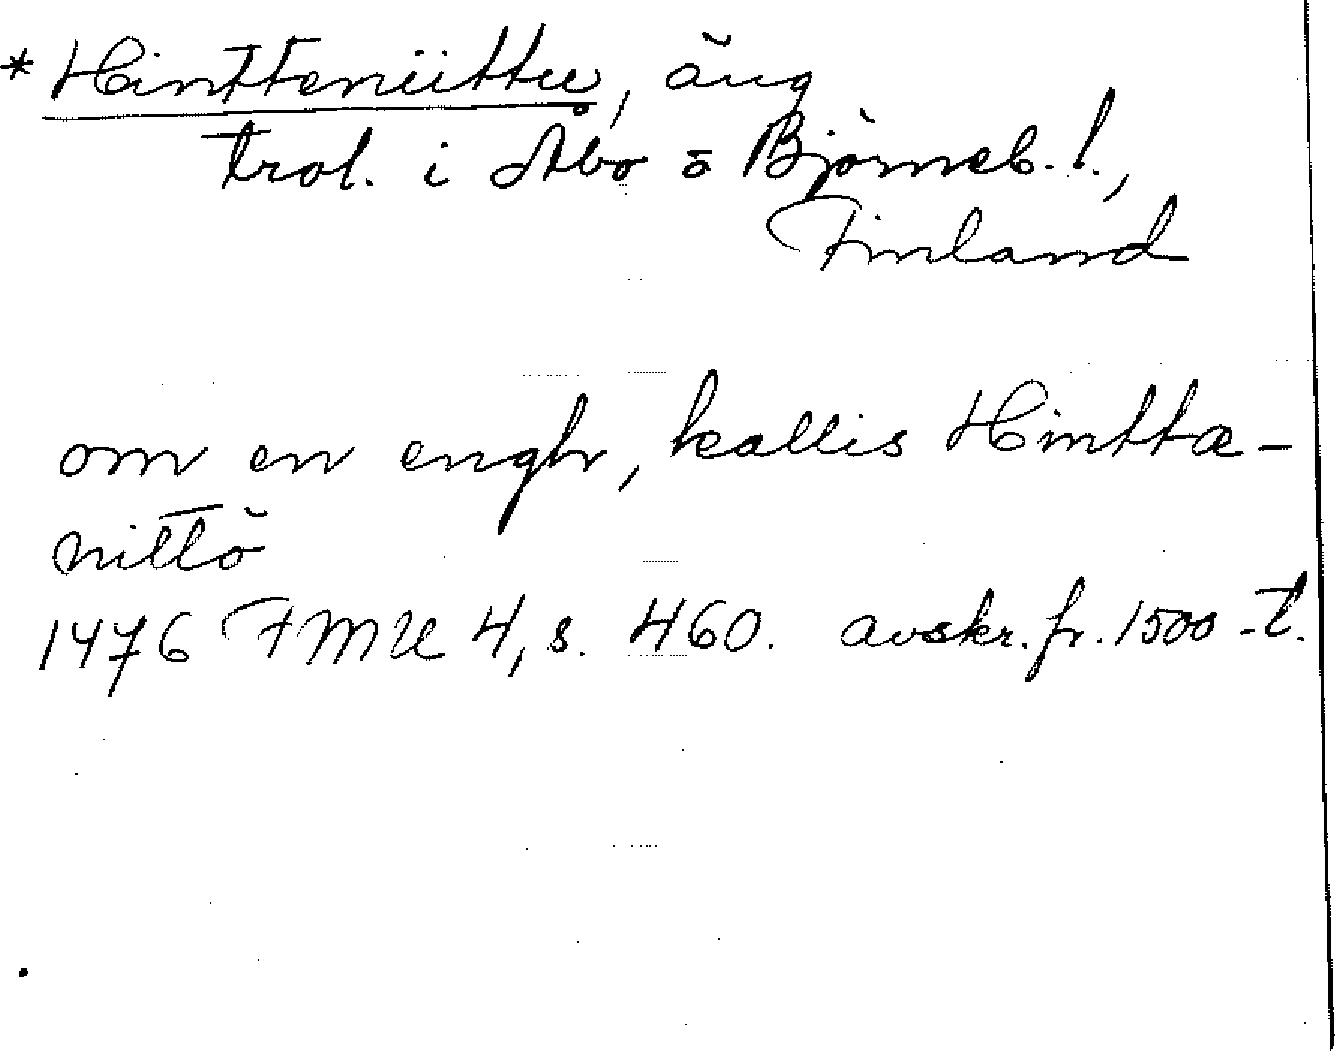 * Hintteniittu, äng
trol. i Åbo o Björneb. l.,
Finland
om en engh, kallis Hintta-
nittö
1476 FMU 4, s. 460. avskr. fr. 1500-t.